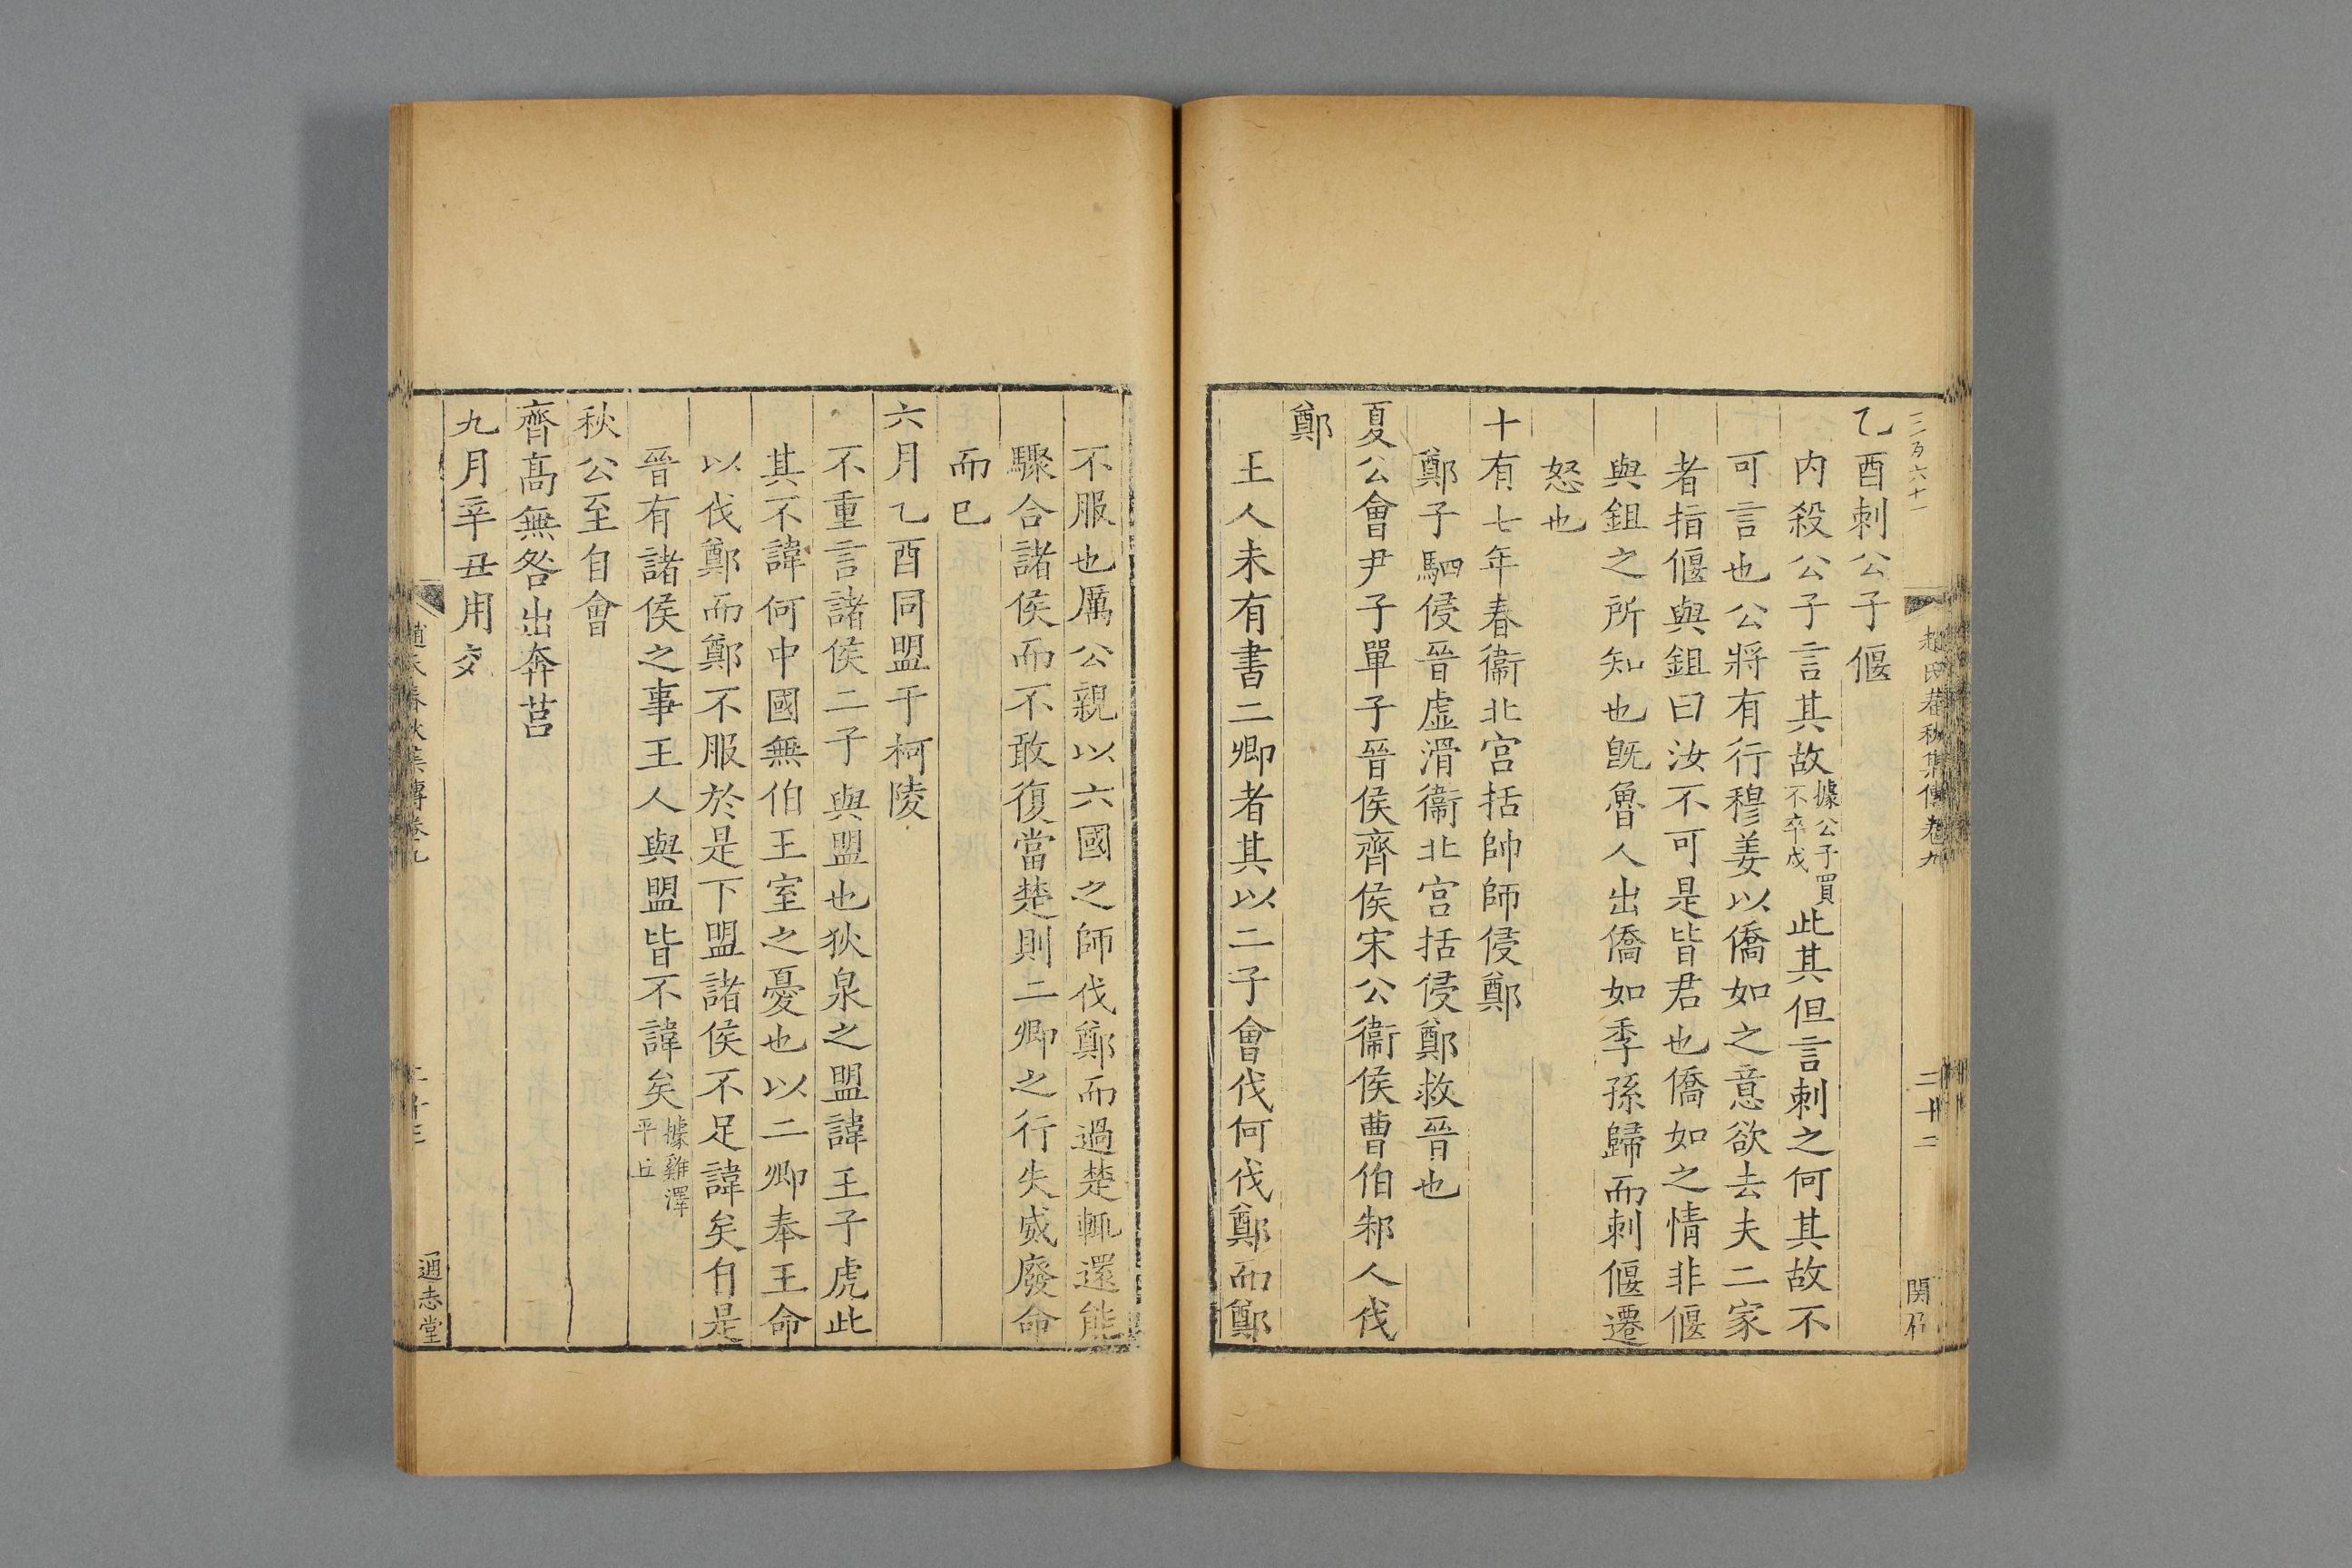 乙酉刺公子偃
內殺公子言其故據公子買不卒戍此其但言刺之何其故不
可言也公將有行穆姜以僑如之意欲去夫二家
者指偃與鉏曰汝不可是皆君也僑如之情非偃
與鉏之所知也旣魯人出僑如季孫歸而刺偃遷
怒也
十有七年春衞北宮括帥師侵鄭
鄭子駟侵晉虛滑衞北宮括侵鄭救晉也
夏公會尹子單子晉侯齊侯宋公衞侯曹伯邾人伐
鄭
王人未有書二卿者其以二子會伐何伐鄭而鄭
不服也厲公親以六國之師伐鄭而過楚輒還能
驟合諸侯而不敢復當楚則二卿之行失威廢命
而已
六月乙酉同盟于柯陵
不重言諸侯二子與盟也狄泉之盟諱王子虎此
其不諱何中國無伯王室之憂也以二卿奉王命
以伐鄭而鄭不服於是下盟諸侯不足諱矣自是
晉有諸侯之事王人與盟皆不諱矣據雞澤平丘
秋公至自會
齊高無咎出奔莒
九月辛丑用郊
趙氏春秋集傳卷九
二十二
通志堂